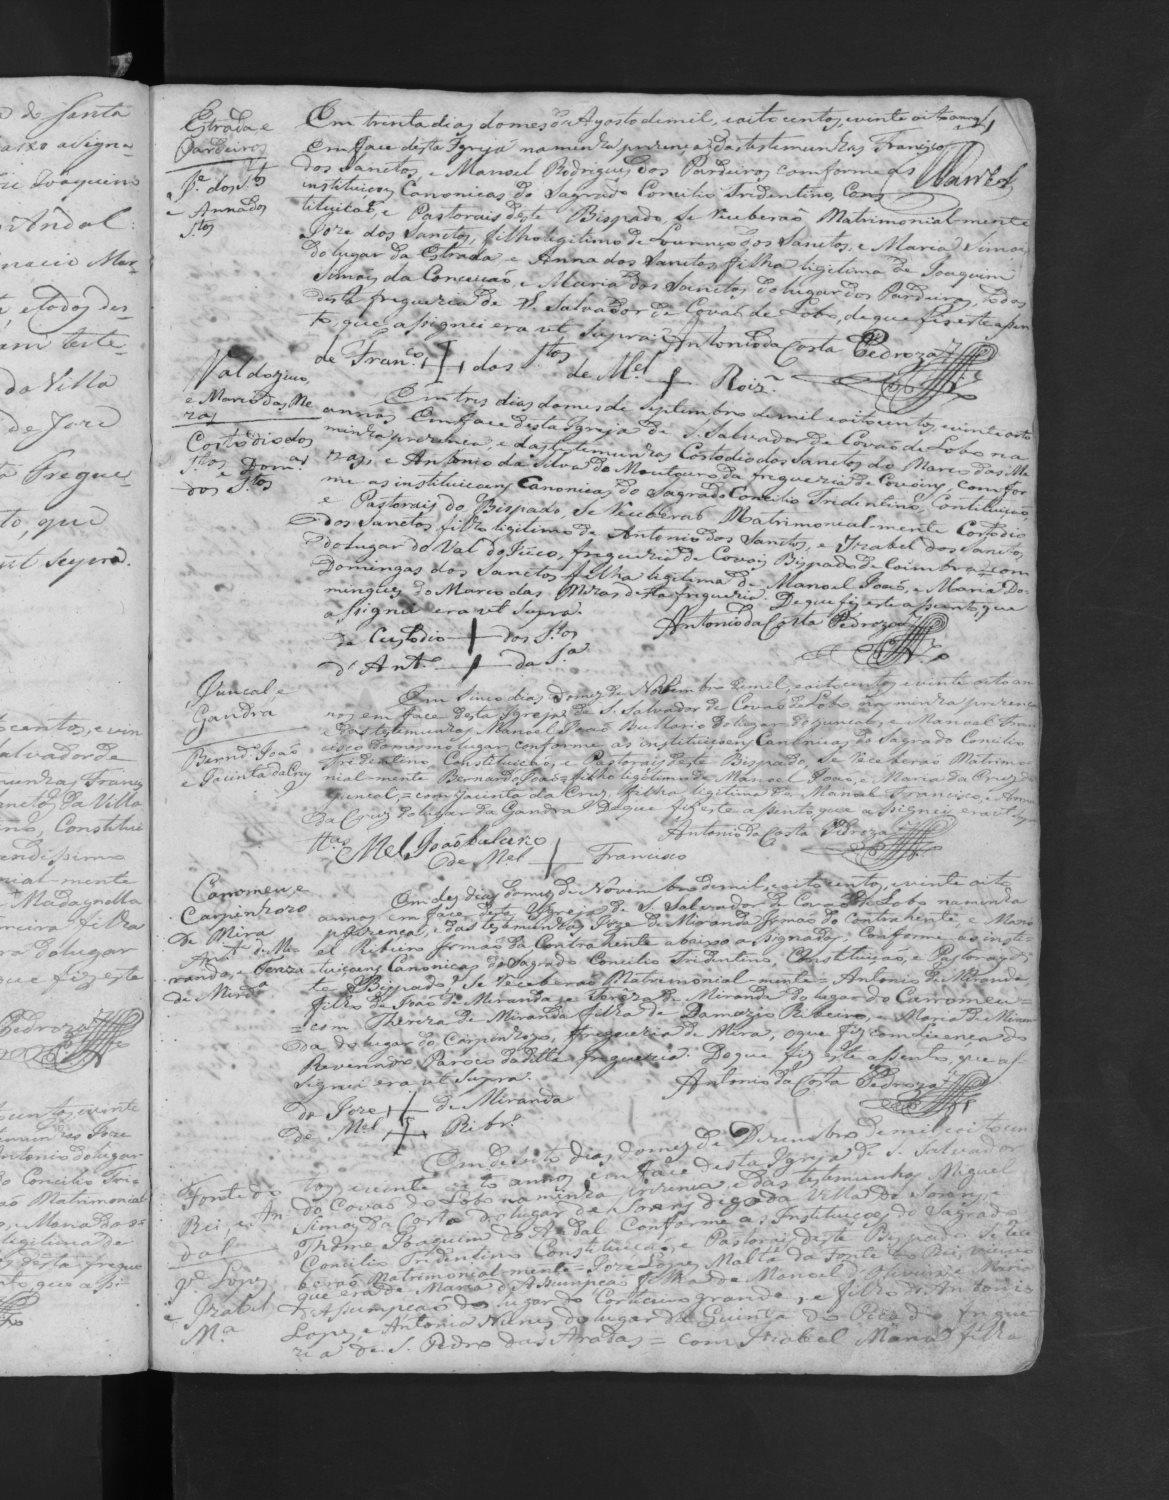 Estrada e
Pardeiros
Je. dos Stos
e Anna dos
Stos
Em trinta dias do mes de Agosto de mil, e oito centos, e vinte oito annos
em face desta Igreja na minha prezença, e das testemunhas Francisco
dos Sanctos, e Manoel Rodrigues dos Pardeiros conforme as
instituiçoens Canonicas do Sagrado Concilio Tridentino, Cons
tituiçaõ, e Pastorais deste Bispado, se receberaõ Matrimonial-mente
Joze dos Sanctos, filho legitimo de Lourenço dos Sanctos, e Maria Simoa,
do lugar da Estrada, e Anna dos Sanctos filha legitima de Joaquim
Simoes da Conceiçaõ, e Maria dos Sanctos do lugar dos Pardeiros, todos
desta freguezia de S. Salvador de Covaõ de Lobo, de que fiz este assen
to, que assignei era ut supra. Antonio da Costa Pedroza
de Franco. + dos Stos
de Mel + Roiz
Val do Juco,
e Marco das Me
ras
Costodio dos
Stos e Domas
dos Stos
Em tres dias do mes de Septembro de mil e oito centos, e vinte oito
annos em face desta Igreja de S. Salvador de Covaõ de Lobo na
minha prezença, e das testemunhas Costodio dos Sanctos do Marco das Me
ras, e Antonio da Silva do Montouro da freguezia de Covoens, confor
me as instituiçoens Canonicas do Sagrado Concilio Tridentino, Contituiçaõ,
e Pastorais do Bispado, se receberaõ Matrimonial-mente Costodio
dos Sanctos filho legitimo de Antonio dos Sanctos, e Izabel dos Sanctos
do lugar do Val do Juco, freguezia de Covoẽs Bispado de Coimbra = com
Domingas dos Sanctos filha legitima de Manoel Joaõ, e Maria Do-
mingues do Marco das Meras desta freguezia. De que fiz este assento, que
assignei era ut supra. Antonio da Costa Pedroza
de Custodio + dos Stos
de Anto. + da Sa
Juncal e
Gandra
Bernd. Joaõ
e Jacinta da Cruz
Em Sinco dias do mez de Novembro de mil, e oito centos, e vinte oito an
nos em face desta Igreja de S. Salvador de Covaõ de Lobo, na minha prezença
e das testemunhas Manoel Joaõ Bullario do lugar do Juncal, e Manoel Fran
cisco do mesmo lugar, conforme as instituiçoens Canonicas do Sagrado Concilio
Tridentino, Constituiçaõ, e Pastorais deste Bispado, se receberaõ Matrimo
nial-mente Bernardo Joaõ = filho legitimo de Manoel Joaõ, e Maria da Cruz do
Juncal, = com Jacinta da Cruz, filha legitima de Manoel Francisco, e Anna
da Cruz do lugar da Gandra. De que fiz este assento, que assignei era ut supra
Antonio da Costa Pedroza
ttas Mel Joaõ bulario
de Mel + Francisco
Carromeu e
Carpinhozo
de Mira
Anto. de Mi-
randa, e Tereza
de Mirda
Em des dias do mez de Novembro de mil, e oito centos, e vinte oito
annos em face desta Igreja de S. Salvador de Covaõ de Lobo na minha
prezença, e das testemunhas Joze de Miranda Irmaõ do Contrahente e Mano
el Ribeiro Irmaõ da Contrahente abaixo assignados: Conforme as insti-
tuiçoens Canonicas do Sagrado Concilio Tridentino, Constituiçaõ, e Pastorais des
te Bispado, Se receberaõ Matrimonial-mente = Antonio de Miranda
filho de Joaõ de Miranda, e Tereza de Miranda do lugar do Carromeu =
= com Thereza de Miranda filha de Damazio Ribeiro, e Maria de Miran
da do lugar do Carpinhozo, freguezia de Mira, o que fiz com licença do
Reverendo Paroco da ditta freguezia. De que fiz este assento, que as-
signei era ut supra. Antonio da Costa Pedroza
de Joze + de Miranda
de Mel + Ribro.
Fonte do
Rei, e An
dal
Je. Lopes
e Izabel
Ma
Em dezoito dias do mez de Dezembro de mil e oito cen
tos, e vinte oito annos em face desta Igreja de S. Salvador
do Covaõ do Lobo na minha prezença, e das testemunhas Miguel
Simoes da Costa do lugar de Soens digo da Villa de Sorens, e
Thome Joaquim do Andal Conforme as Instituiçoẽs do Sagrado
Concilio Tridentino Constituiçaõ, e Pastorais deste Bispado Se rece
beraõ Matrimonial-mente = Joze Lopes Malta da Fonte do Rei, viuvo
que era de Maria de Assumpçaõ filha de Manoel de Oliveira e Maria
de Assumpçaõ do lugar do Corticeiro grande, e filho de Antonio
Lopes, e Antonia Nunes do lugar da Quinta do Picado fregue
zia de S. Pedro das Aradas = com Izabel Maria filha